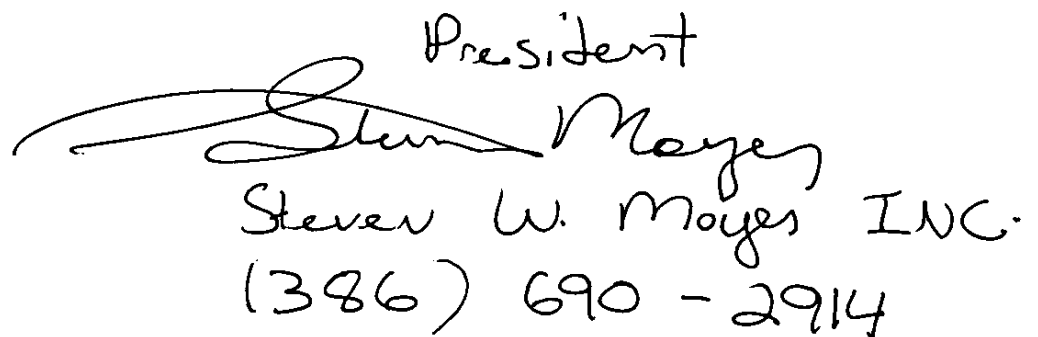 President
Steven Moyes
Steven W. Moyes INC.
(386) 690-2914